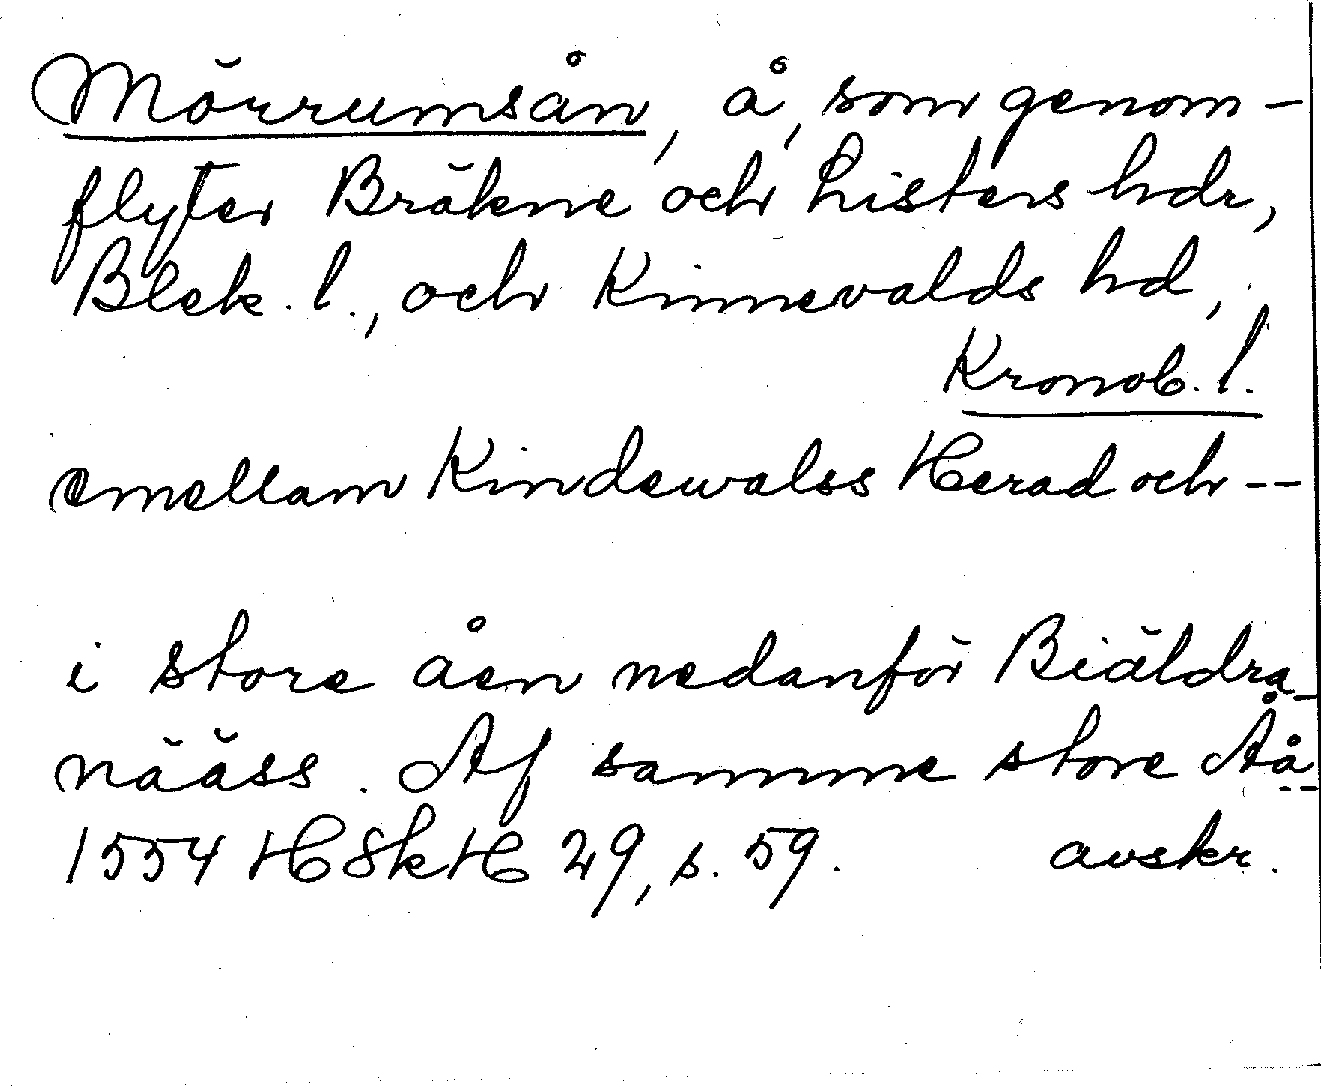 Mörrumsån, å, som genom-
flyter Bräkne och Listers hdr,
Blek. l., och Kinnevalds hd,
Kronob. l.
emellam Kindewalss Herad och --
i store åen nedanför Biäldra-
nääss. Af samme store Åå
1554 HSkH 29, s. 59. avskr.